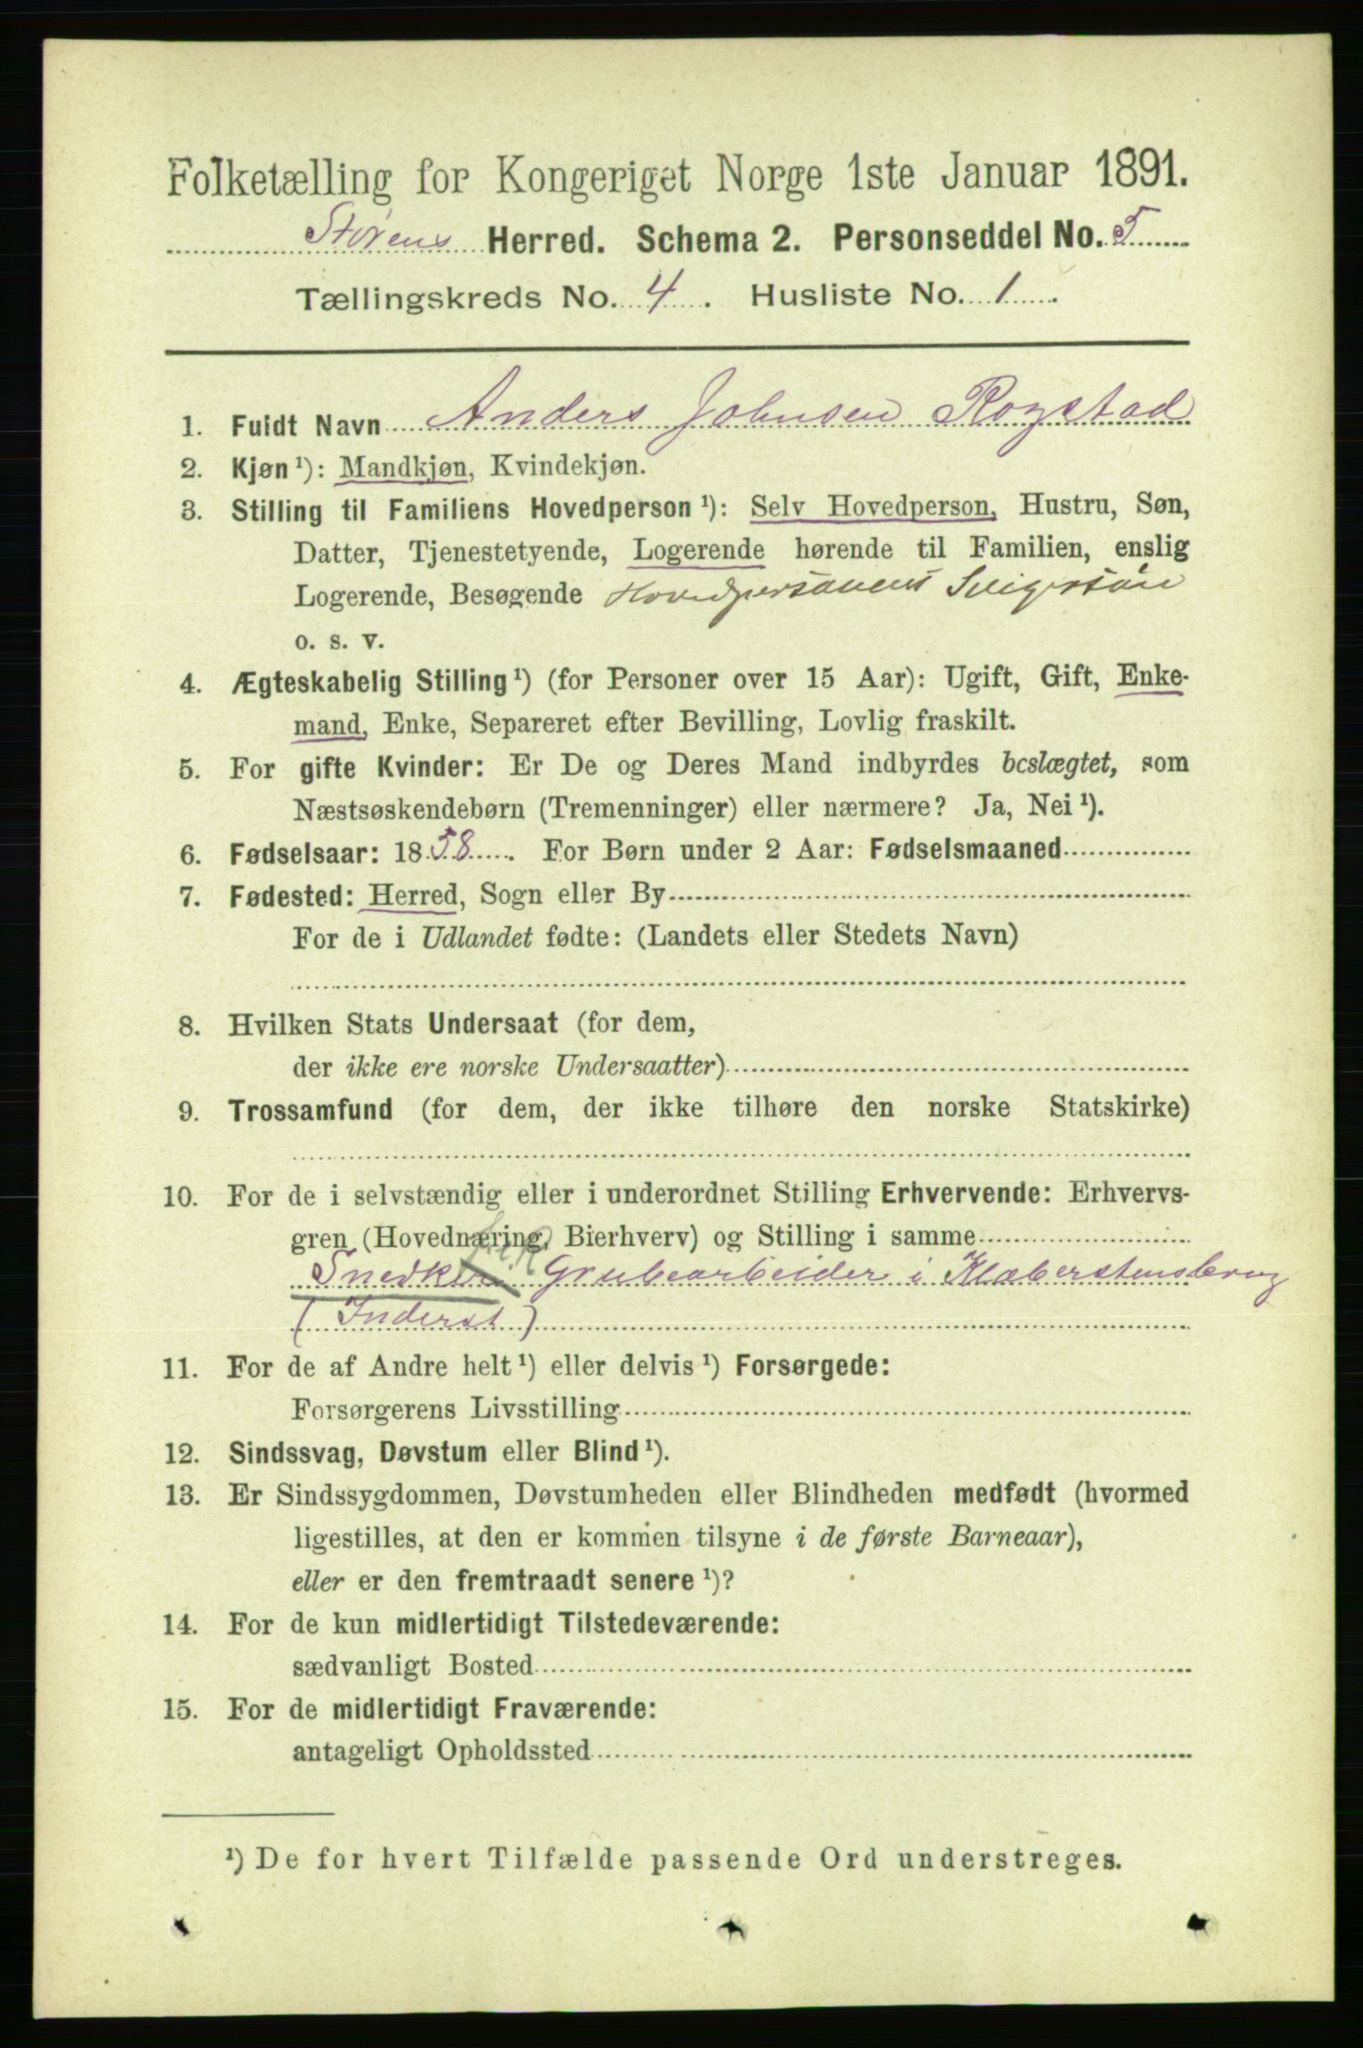 Folketælling for Kongeriget Norge 1ste Januar 1891.
Størens Herred. Schema 2. Personseddel No. 5
Tællingskreds No. 4. Husliste No. 1.
1. Fuldt Navn Anders Johnsen Rogstad
2. Kjøn ¹): Mandkjøn, Kvindekjøn.
3. Stilling til Familiens Hovedperson ¹): Selv Hovedperson, Hustru, Søn,
Datter, Tjenestetyende, Logerende hørende til Familien, enslig
Logerende, Besøgende Hovedpersonens Svigersøn
o. s. v.
4. Ægteskabelig Stilling ¹) (for Personer over 15 Aar): Ugift, Gift, Enke-
mand, Enke, Separeret efter Bevilling, Lovlig fraskilt.
5. For gifte Kvinder: Er De og Deres Mand indbyrdes beslægtet, som
Næstsøskendebørn (Tremenninger) eller nærmere? Ja, Nei ¹).
6. Fødselsaar: 1858. For Børn under 2 Aar: Fødselsmaaned
7. Fødested: Herred, Sogn eller By
For de i Udlandet fødte: (Landets eller Stedets Navn)
8. Hvilken Stats Undersaat (for dem,
der ikke ere norske Undersaatter)
9. Trossamfund (for dem, der ikke tilhøre den norske Statskirke)
10. For de i selvstændig eller i underordnet Stilling Erhvervende: Erhvervs-
gren (Hovednæring, Bierhverv) og Stilling i samme
Snedkeri Grubearbeider i Klæberstensbrug
(Inderst)
11. For de af Andre helt ¹) eller delvis ¹) Forsørgede:
Forsørgerens Livsstilling
12. Sindssvag, Døvstum eller Blind ¹).
13. Er Sindssygdommen, Døvstumheden eller Blindheden medfødt (hvormed
ligestilles, at den er kommen tilsyne i de første Barneaar),
eller er den fremtraadt senere ¹)?
14. For de kun midlertidigt Tilstedeværende:
sædvanligt Bosted
15. For de midlertidigt Fraværende:
antageligt Opholdssted
¹) De for hvert Tilfælde passende Ord understreges.